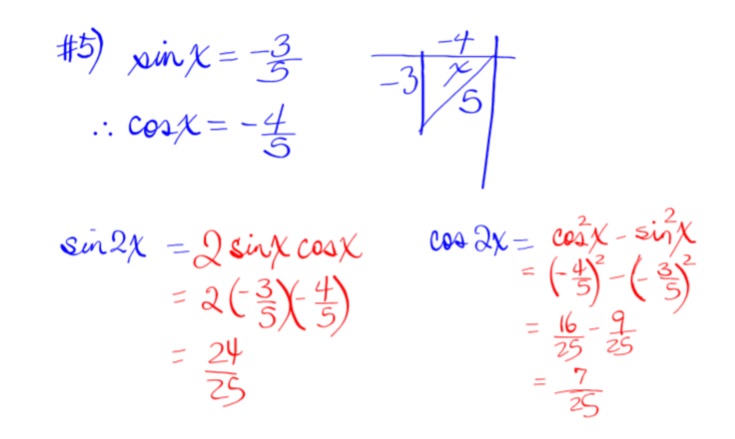 #5) sin x = -3/5
-4
-3 x 5
∴ cos x = -4/5
sin 2x = 2 sin x cos x
= 2(-3/5)(-4/5)
= 24/25
cos 2x = cos²x - sin²x
= (-4/5)² - (-3/5)²
= 16/25 - 9/25
= 7/25